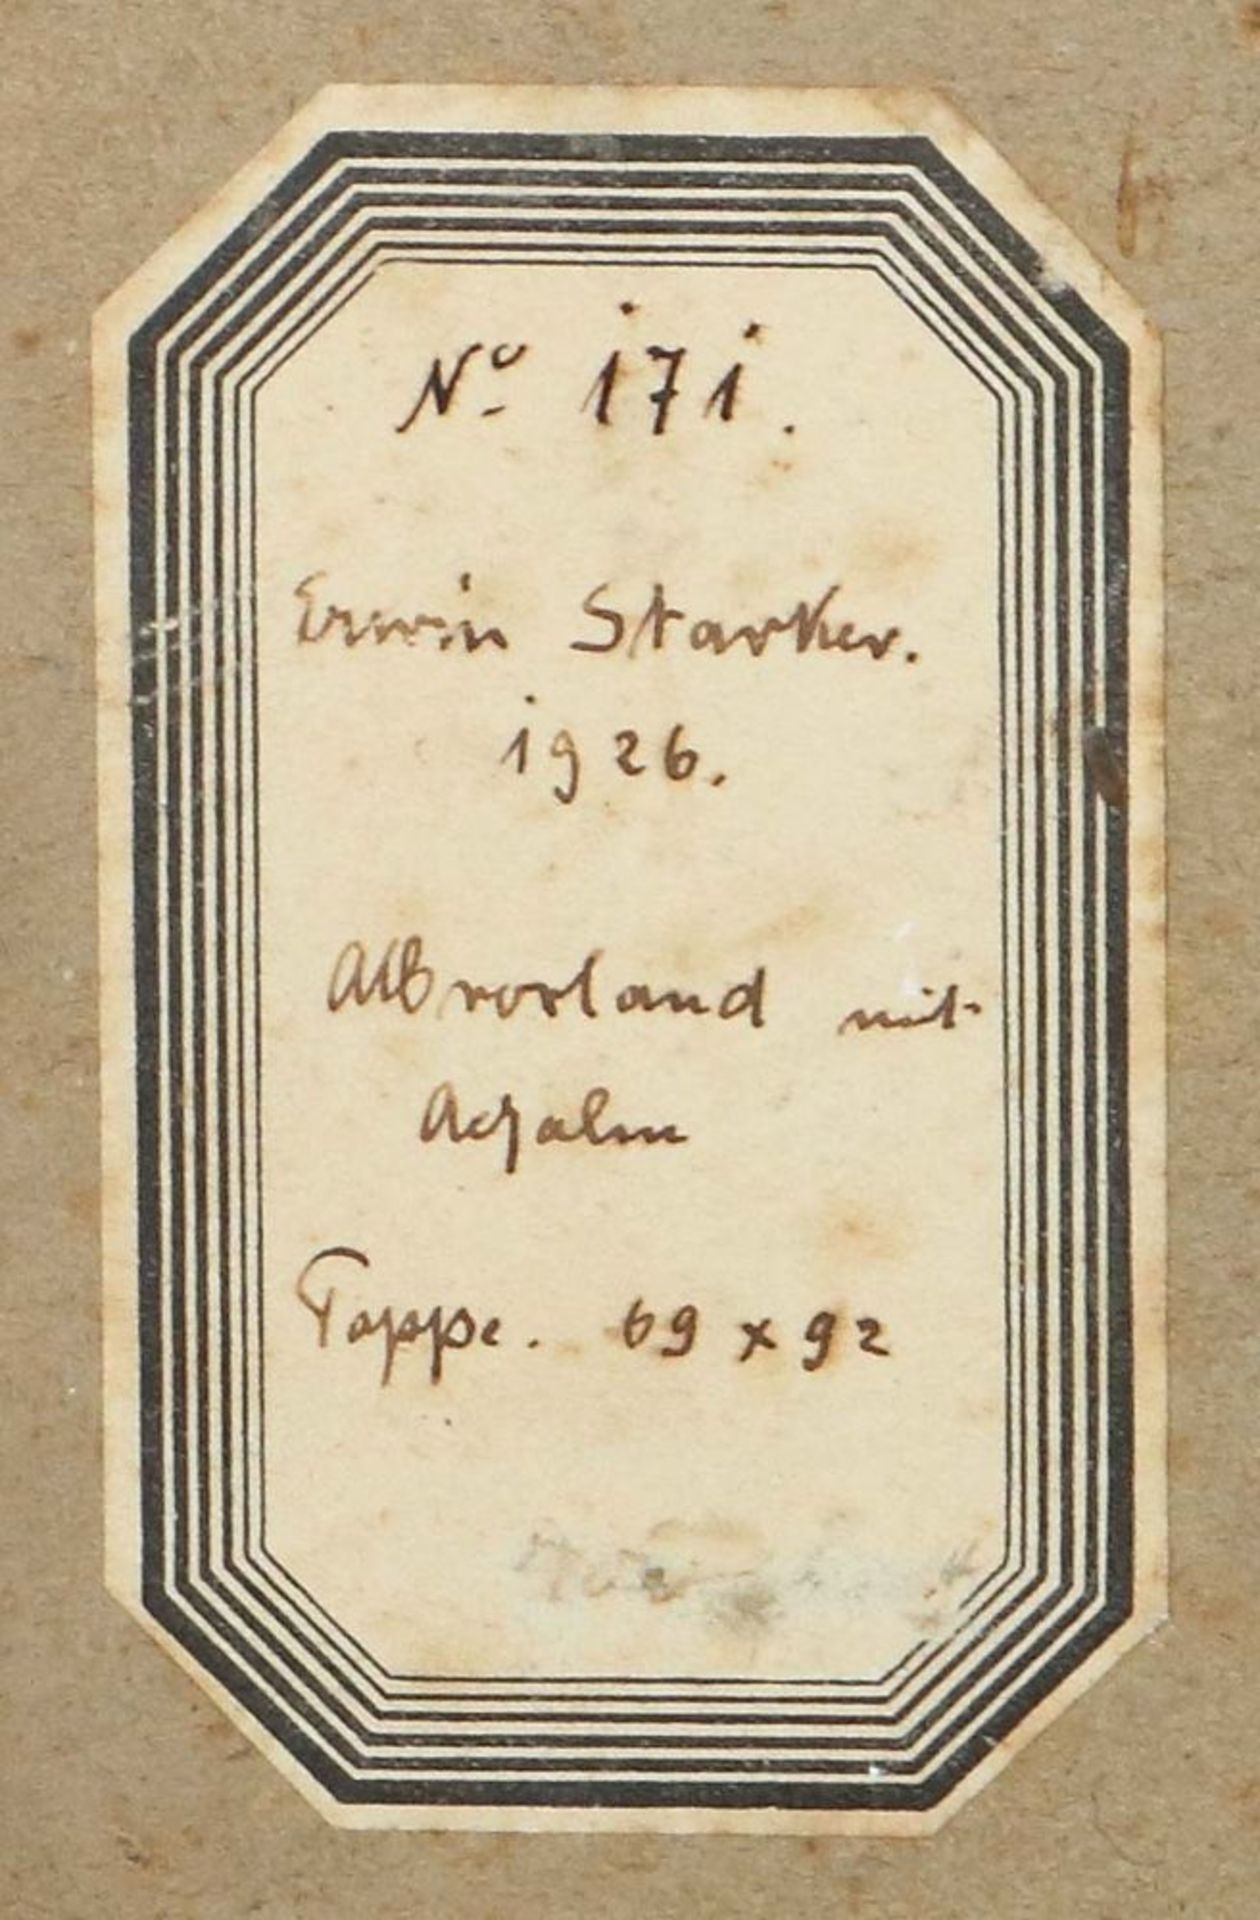 No 171.
Erwin Starker.
1926.
Albvorland mit
Achalm
Pappe. 69 x 92